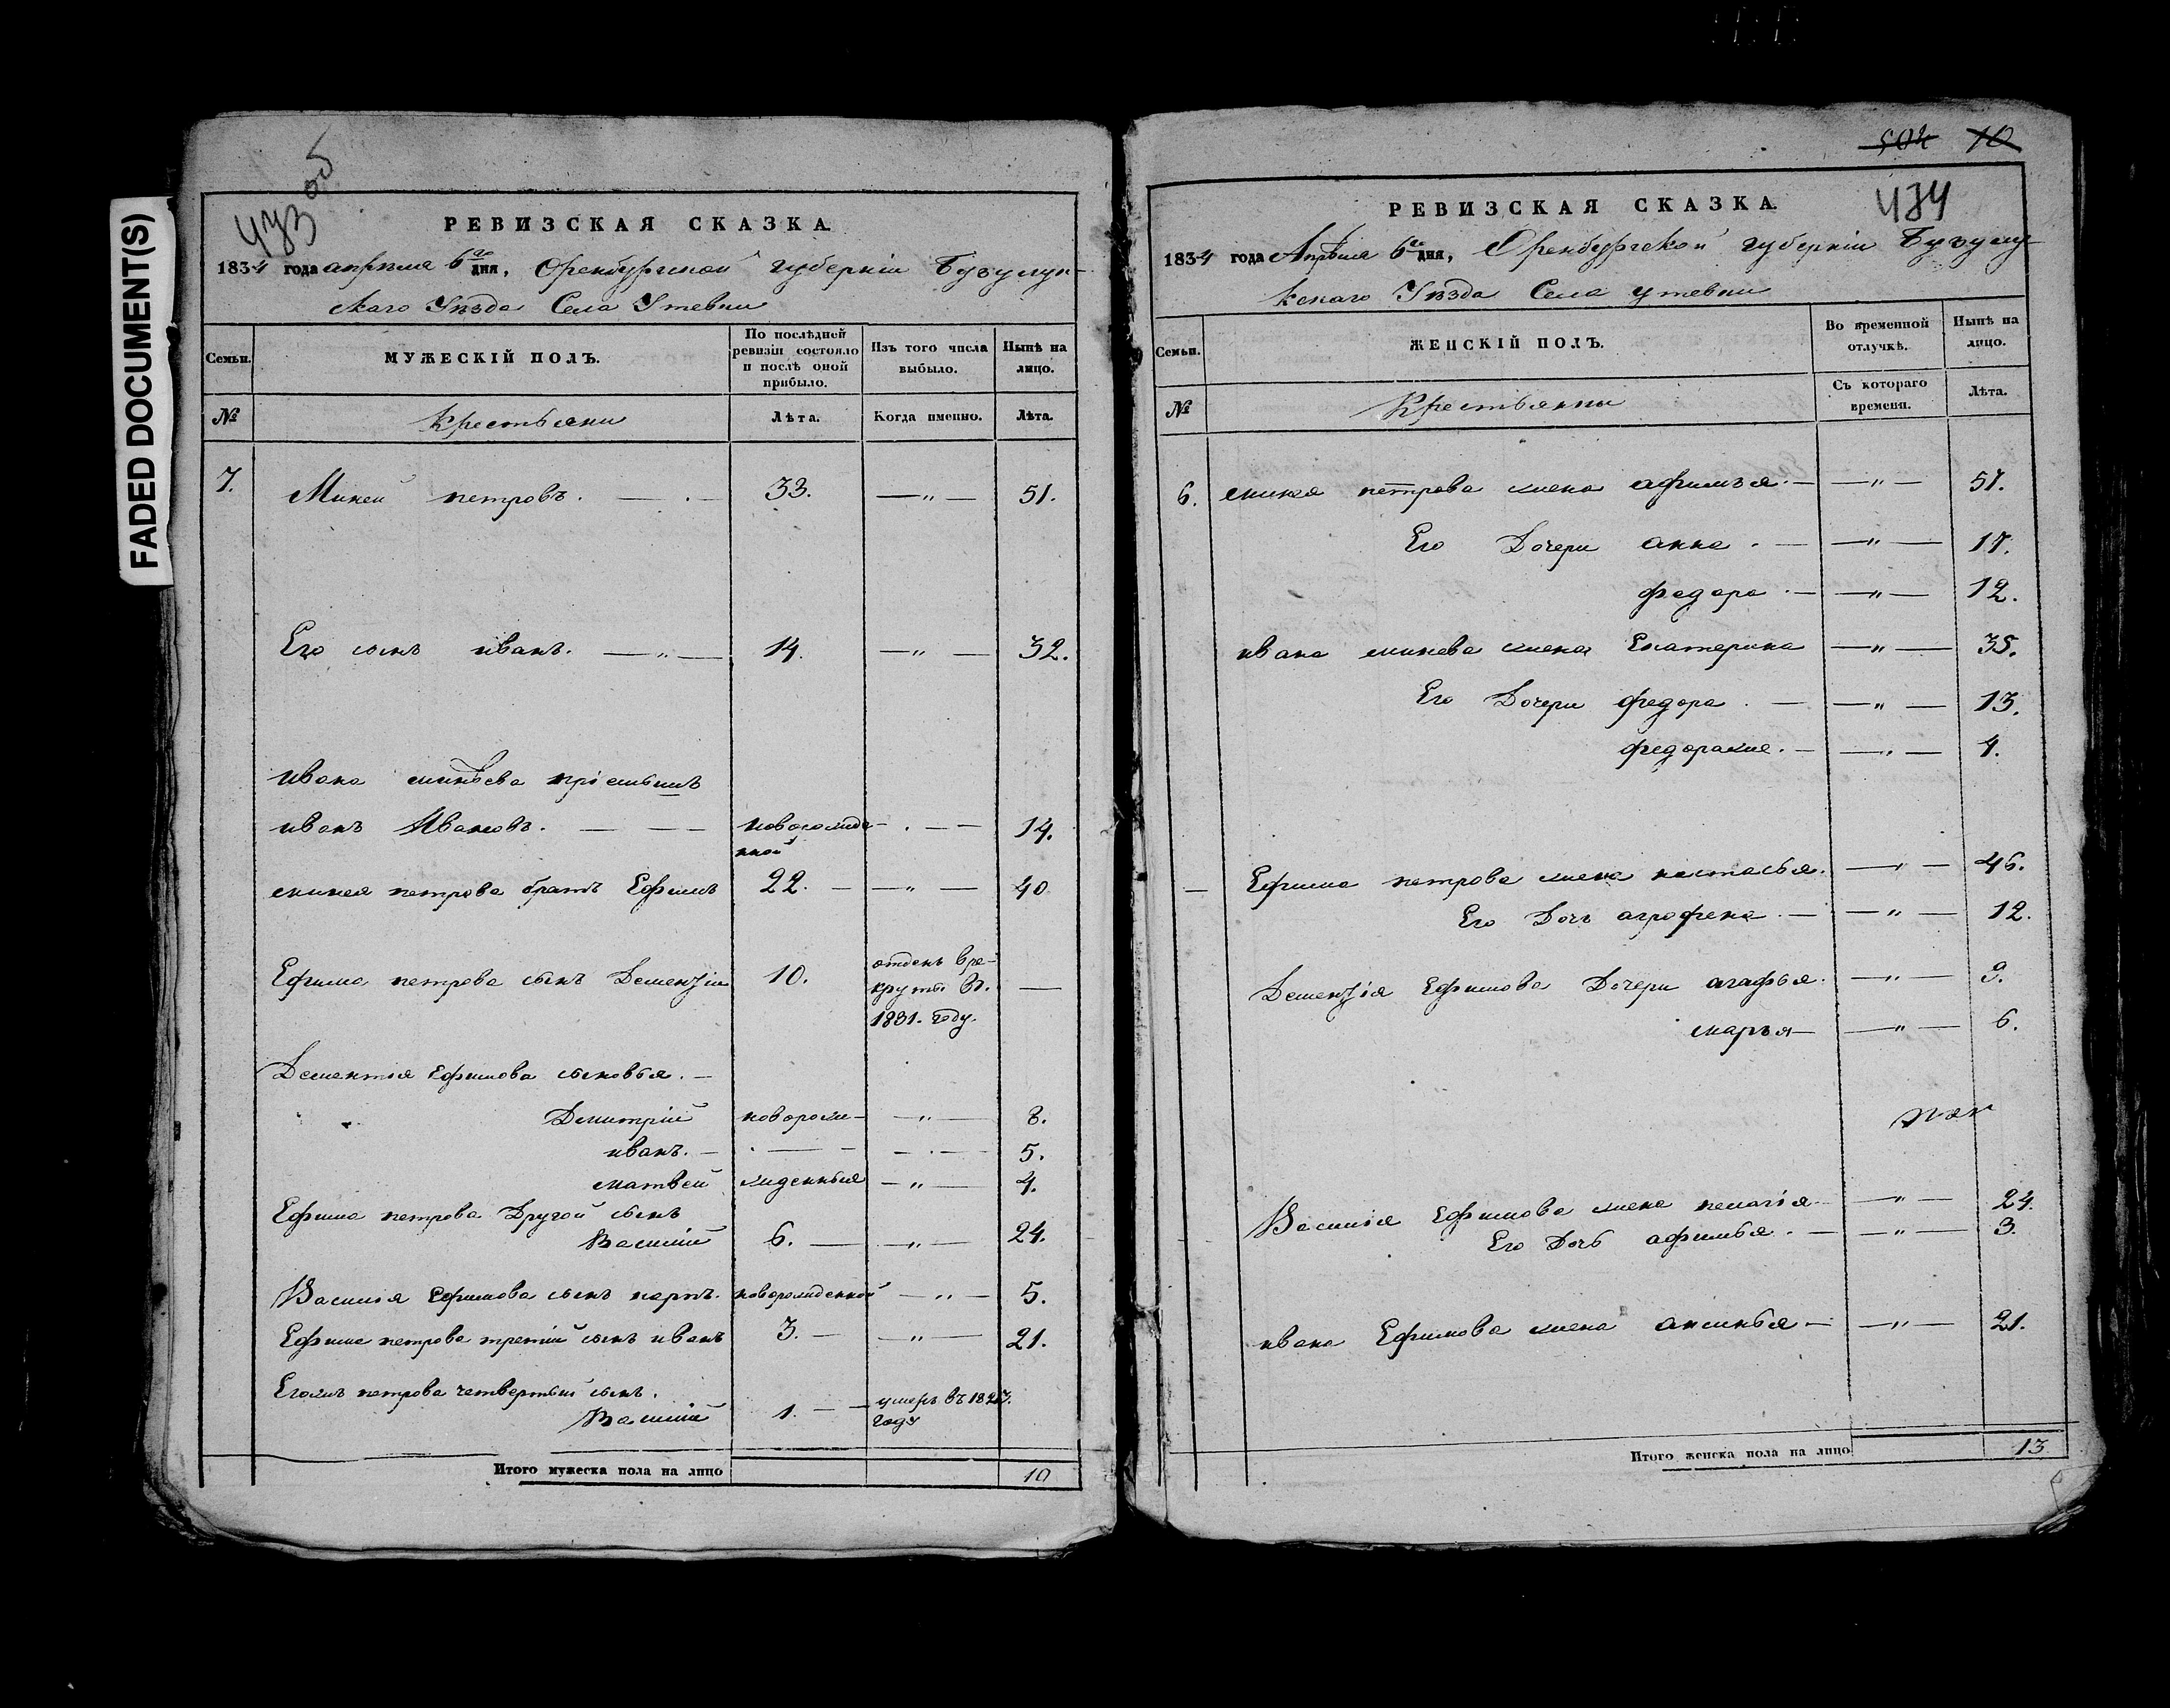 FADED DOCUMENT(S)
473 об
РЕВИЗСКАЯ СКАЗКА
1834 года апреля 6го дня, Оренбургской губернии Бузулук-
скаго Уезда Села Утевки
Семьи.
МУЖЕСКІЙ ПОЛЪ.
По послѣдней ревизіи состояло и послѣ оной прибыло.
Изъ того числа выбыло.
Нынѣ на лицо.
№
крестьяни
Лѣта.
Когда именно.
Лѣта.
7. Миней петровъ. 33. —„— 51.
Его сынъ иванъ. —„— 14. —„— 32.
ивана минѣева пріемышъ
иванъ Ивановъ. — — новорожде- 14.
нной
минея петрова братъ Ефимъ 22. — —„— 40
отданъ вре-
Ефима петрова сынъ Дементiй 10. круты въ. —
1831. году.
Дементія Ефимова сыновья. —
Дмитрій новорож- —„— 8.
иванъ. — 5.
матвей жденныя —„— 4.
Ефима петрова Другой сынъ
Василий 6. — —„— 24.
Василія Ефимова сынъ карпъ. новорожденной —„— 5.
Ефима петрова третий сынъ иванъ 3. — —„— 21.
петрова четвертый сынъ.
Василий 1. — умеръ въ
году
Итого мужеска пола на лицо 10
504 10
474
РЕВИЗСКАЯ СКАЗКА
1834 года Апрѣля 6го дня, Оренбургской губерніи Бузулу-
кскаго Уѣзда Села утевки
Семьи.
ЖЕНСКІЙ ПОЛЪ.
Во временной отлучкѣ.
Нынѣ на лицо.
№
Крестьянки
Съ котораго времени.
Лѣта.
6. минея петрова жена афимья. — —„— 51.
Его Дочери анна. — —„— 17.
федора. — —„— 12.
ивана минева жена Екатерина —„— 35.
Его Дочери федора. — —„— 13.
—„— 4.
— Ефима петрова жена настасья. —„— 46.
Его Дочь агрофена. — —„— 12.
Дементія Ефимова Дочери агафья. —„— 9.
марья — —„— 6.
Василія Ефимова жена пелагія —„— 24.
Его Дочь афимья. — —„— 3.
ивана Ефимова жена аксинья — —„— 21.
Итого женска пола на лицо 13